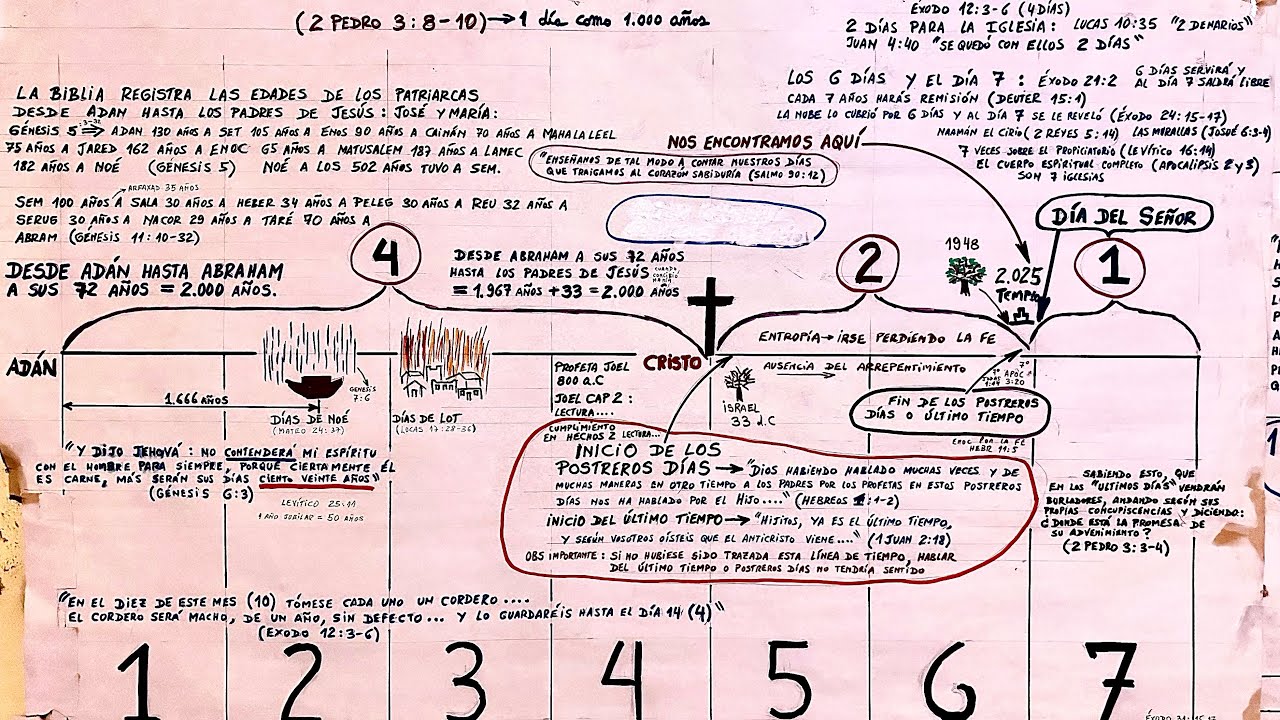 (2 PEDRO 3:8-10) → 1 día como 1.000 años
ÉXODO 12:3-6 (4 DÍAS)
2 DÍAS PARA LA IGLESIA: LUCAS 10:35 "2 DENARIOS"
JUAN 4:40 "SE QUEDÓ CON ELLOS 2 DÍAS"
LOS 6 DÍAS Y EL DÍA 7: ÉXODO 21:2 6 DÍAS SERVIRÁ Y
AL DÍA 7 SALDRÁ LIBRE
CADA 7 AÑOS HARÁS REMISIÓN (DEUTER 15:1)
LA NUBE LO CUBRIÓ POR 6 DÍAS Y AL DÍA 7 SE LE REVELÓ (ÉXODO 24:15-17)
NAAMÁN EL CIRIO (2 REYES 5:14) LAS MURALLAS (JOSUÉ 6:3-4)
7 VECES SOBRE EL PROPICIATORIO (LEVÍTICO 16:14)
EL CUERPO ESPIRITUAL COMPLETO (APOCALIPSIS 2 y 3)
SON 7 IGLESIAS
LA BIBLIA REGISTRA LAS EDADES DE LOS PATRIARCAS
DESDE ADAN HASTA LOS PADRES DE JESÚS: JOSÉ Y MARÍA:
GÉNESIS 5 3-32 ⇒ ADAN 130 AÑOS A SET 105 AÑOS A ENOS 90 AÑOS A CAINÁN 70 AÑOS A MAHALALEEL
75 AÑOS A JARED 162 AÑOS A ENOC 65 AÑOS A MATUSALEM 187 AÑOS A LAMEC
182 AÑOS A NOÉ (GÉNESIS 5) NOÉ A LOS 502 AÑOS TUVO A SEM.
ARFAXAD 35 AÑOS
SEM 100 AÑOS A SALA 30 AÑOS A HEBER 34 AÑOS A PELEG 30 AÑOS A REU 32 AÑOS A
SERUG 30 AÑOS A NACOR 29 AÑOS A TARÉ 70 AÑOS A
ABRAM (GÉNESIS 11:10-32)
NOS ENCONTRAMOS AQUÍ
"ENSEÑANOS DE TAL MODO A CONTAR NUESTROS DÍAS
QUE TRAIGAMOS AL CORAZÓN SABIDURÍA (SALMO 90:12)
DÍA DEL SEÑOR
4
2
1
DESDE ADÁN HASTA ABRAHAM
A SUS 72 AÑOS = 2.000 AÑOS.
DESDE ABRAHAM A SUS 72 AÑOS
HASTA LOS PADRES DE JESÚS
= 1.967 AÑOS + 33 = 2.000 AÑOS
1948
2.025
TEMPLO
ADÁN
ENTROPÍA → IRSE PERDIENDO LA FE
CRISTO
AUSENCIA DEL ARREPENTIMIENTO
1.666 AÑOS
GENESIS
7:6
DÍAS DE NOÉ
(MATEO 24:37)
DÍAS DE LOT
(LUCAS 17:28-36)
PROFETA JOEL
800 a.C
JOEL CAP 2:
LECTURA....
CUMPLIMIENTO
EN HECHOS 2 LECTURA...
ISRAEL
33 d.C
FIN DE LOS POSTREROS
DÍAS O ÚLTIMO TIEMPO
ENOC POR LA FE
HEBR 11:5
"Y DIJO JEHOVÁ: NO CONTENDERÁ MI ESPÍRITU
CON EL HOMBRE PARA SIEMPRE, PORQUE CIERTAMENTE ÉL
ES CARNE, MÁS SERÁN SUS DÍAS CIENTO VEINTE AÑOS"
(GÉNESIS 6:3)
LEVÍTICO 25:11
1 AÑO JUBILAR = 50 AÑOS
INICIO DE LOS
POSTREROS DÍAS → "DIOS HABIENDO HABLADO MUCHAS VECES Y DE
MUCHAS MANERAS EN OTRO TIEMPO A LOS PADRES POR LOS PROFETAS EN ESTOS POSTREROS
DÍAS NOS HA HABLADO POR EL HIJO...." (HEBREOS 1:1-2)
INICIO DEL ÚLTIMO TIEMPO → "HIJITOS, YA ES EL ÚLTIMO TIEMPO,
Y SEGÚN VOSOTROS OÍSTEIS QUE EL ANTICRISTO VIENE...." (1 JUAN 2:18)
OBS IMPORTANTE: SI NO HUBIESE SIDO TRAZADA ESTA LÍNEA DE TIEMPO, HABLAR
DEL ÚLTIMO TIEMPO O POSTREROS DÍAS NO TENDRÍA SENTIDO
SABIENDO ESTO, QUE
EN LOS "ULTIMOS DÍAS" VENDRÁN
BURLADORES, ANDANDO SEGÚN SUS
PROPIAS CONCUPISCENCIAS Y DICIENDO:
¿DONDE ESTÁ LA PROMESA DE
SU ADVENIMIENTO?
(2 PEDRO 3:3-4)
"EN EL DIEZ DE ESTE MES (10) TÓMESE CADA UNO UN CORDERO....
EL CORDERO SERÁ MACHO, DE UN AÑO, SIN DEFECTO... Y LO GUARDARÉIS HASTA EL DÍA 14 (4)"
(ÉXODO 12:3-6)
1 2 3 4 5 6 7